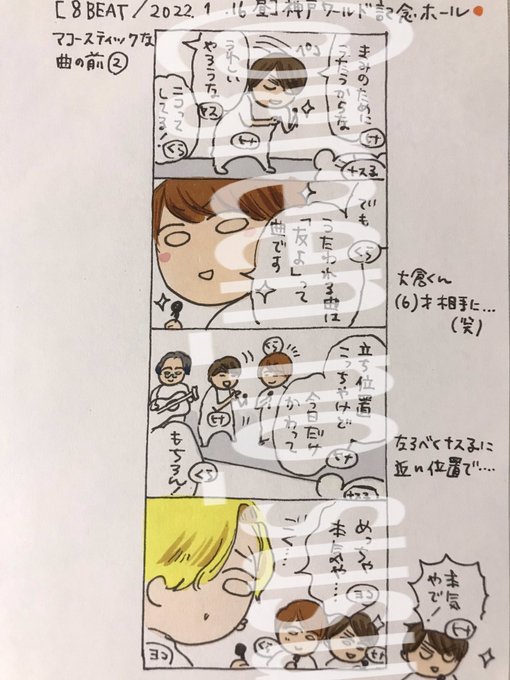 [8BEAT/2022.1.16昼]神戸ワールド記念ホール
アコースティックな
曲の前②
まみのために
うたうからな
ヒナ
ペコ
うれしい
やろうな
ヤス
ニコって
してる!
くら
ナスる
でも
くら
うたわれる曲は
「友よ」って
曲です
大倉くん
(6)才相手に…
(笑)
くら
立ち位置
こっちやけど
今日だけ
かわって
ヒナ
ヒナ
もちろん!
くら
ナスる
左るべくナスるに
近い位置で…
めっちゃ
本気や…
ヨコ
ごく…
ヨコ
くら
本気
やで!